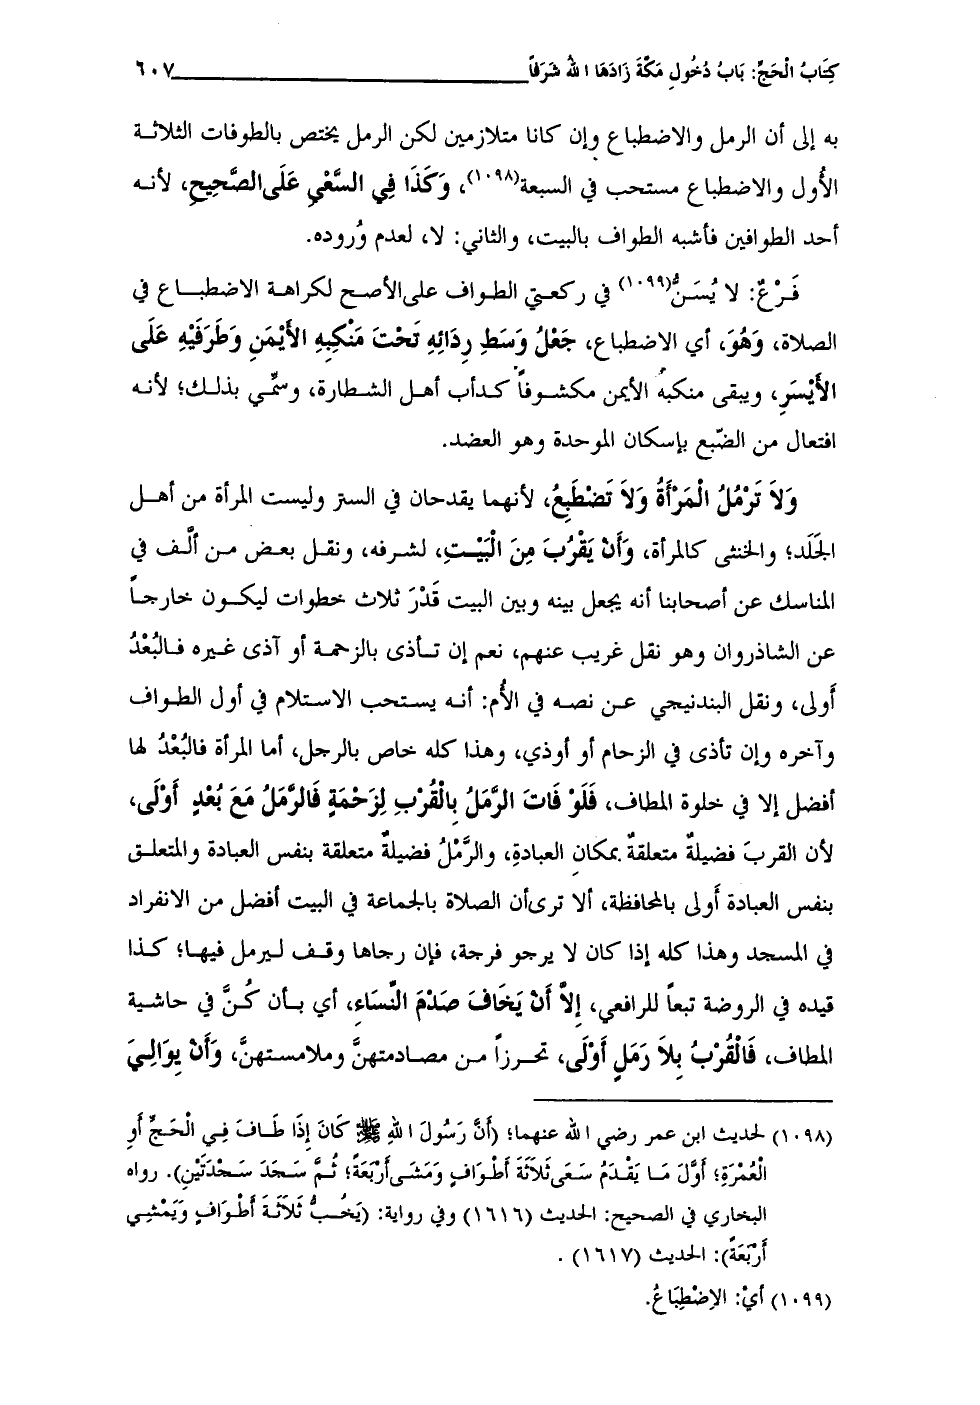 كِتَابُ الْحَجِّ: بَابُ دُخُولِ مَكَّةَ زَادَهَا اللهُ شَرَفاً ٦٠٧
به إلى أن الرمل والاضطباع وإن كانا متلازمين لكن الرمل يختص بالطوفات الثلاثة
الأُول والاضطباع مستحب في السبعة(١٠٩٨)، وَكَذَا فِي السَّعْيِ عَلَى الصَّحِيحِ، لأنه
أحد الطوافين فأشبه الطواف بالبيت، والثاني: لا، لعدم وُروده.
فَرْعٌ: لا يُسَنُّ(١٠٩٩) في ركعتي الطواف على الأصح لكراهة الاضطباع في
الصلاة، وَهُوَ، أي الاضطباع، جَعْلُ وَسَطِ رِدَائِهِ تَحْتَ مَنْكِبِهِ الأَيْمَنِ وَطَرَفَيْهِ عَلَى
الأَيْسَرِ، ويبقى منكبهُ الأيمن مكشوفاً كدأب أهل الشطارة، وسمِّي بذلك؛ لأنه
افتعال من الضّبع بإسكان الموحدة وهو العضد.
وَلاَ تَرْمُلُ الْمَرْأَةُ وَلاَ تَضْطَبِعُ، لأنهما يقدحان في الستر وليست المرأة من أهل
الجَلَد؛ والخنثى كالمرأة، وَأَنْ يَقْرُبَ مِنَ الْبَيْتِ، لشرفه، ونقل بعض من ألَّف في
المناسك عن أصحابنا أنه يجعل بينه وبين البيت قَدْرَ ثلاث خطوات ليكون خارجاً
عن الشاذروان وهو نقل غريب عنهم، نعم إن تأذى بالزحمة أو آذى غيره فالبُعْدُ
أَولى، ونقل البندنيجي عن نصه في الأُم: أنه يستحب الاستلام في أول الطواف
وآخره وإن تأذى في الزحام أو أوذي، وهذا كله خاص بالرجل، أما المرأة فالبُعْدُ لها
أفضل إلا في خلوة المطاف، فَلَوْ فَاتَ الرَّمَلُ بِالْقُرْبِ لِزَحْمَةٍ فَالرَّمَلُ مَعَ بُعْدٍ أَوْلَى،
لأن القربَ فضيلةٌ متعلقةٌ بمكان العبادةِ، والرَّمْلُ فضيلةٌ متعلقة بنفس العبادة والمتعلق
بنفس العبادة أَولى بالمحافظة، ألا ترى أن الصلاة بالجماعة في البيت أفضل من الانفراد
في المسجد وهذا كله إذا كان لا يرجو فرجة، فإن رجاها وقف ليرمل فيها؛ كذا
قيده في الروضة تبعاً للرافعي، إِلاَّ أَنْ يَخَافَ صَدْمَ النِّسَاءِ، أي بأن كُنَّ في حاشية
المطاف، فَالْقُرْبُ بِلاَ رَمَلٍ أَوْلَى، تحرزاً من مصادمتهنَّ وملامستهنَّ، وَأَنْ يوَالِيَ
(١٠٩٨) لحديث ابن عمر رضي الله عنهما؛ (أَنَّ رَسُولَ اللهِ ﷺ كَانَ إِذَا طَافَ فِي الْحَجِّ أَوِ
الْعُمْرَةِ؛ أَوَّلَ مَا يَقْدَمُ سَعَى ثَلاَثَةَ أَطْوَافٍ وَمَشَى أَرْبَعَةً؛ ثُمَّ سَجَدَ سَجْدَتَيْنِ). رواه
البخاري في الصحيح: الحديث (١٦١٦) وفي رواية: (يَخُبُّ ثَلاَثَةَ أَطْوَافٍ وَيَمْشِي
أَرْبَعَةً): الحديث (١٦١٧) .
(١٠٩٩) أَيْ: الإِضْطِبَاعُ.